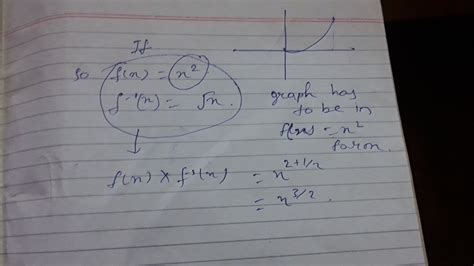 If
so f(x) = x²
f⁻¹(x) = √x.
graph has
to be in
f(x) = x²
form.
f(x) × f⁻¹(x) = x^{2+1/2}
= x^{3/2}.